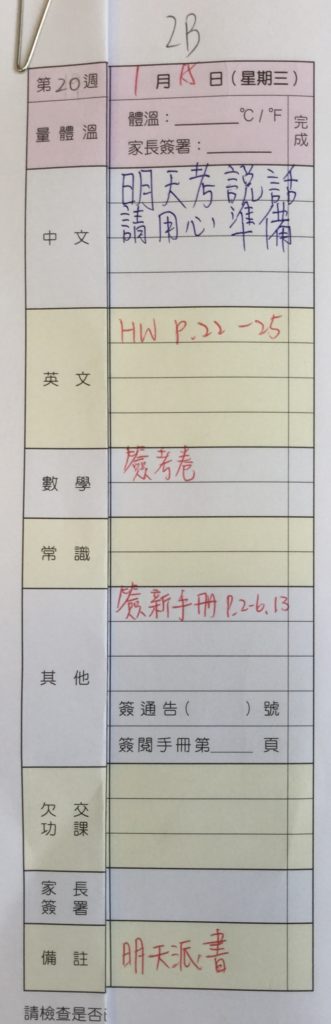 2B
第20週 1月15日(星期三)
量體溫 體溫:______℃/℉ 完成
家長簽署:______
中文 明天考説話
請用心準備
英文 HW P.22-25
數學 簽考卷
常識
其他 簽新手冊 P.2-6,13
簽通告( )號
簽閱手冊第____頁
欠交功課
家長簽署
備註 明天派書
請檢查是否